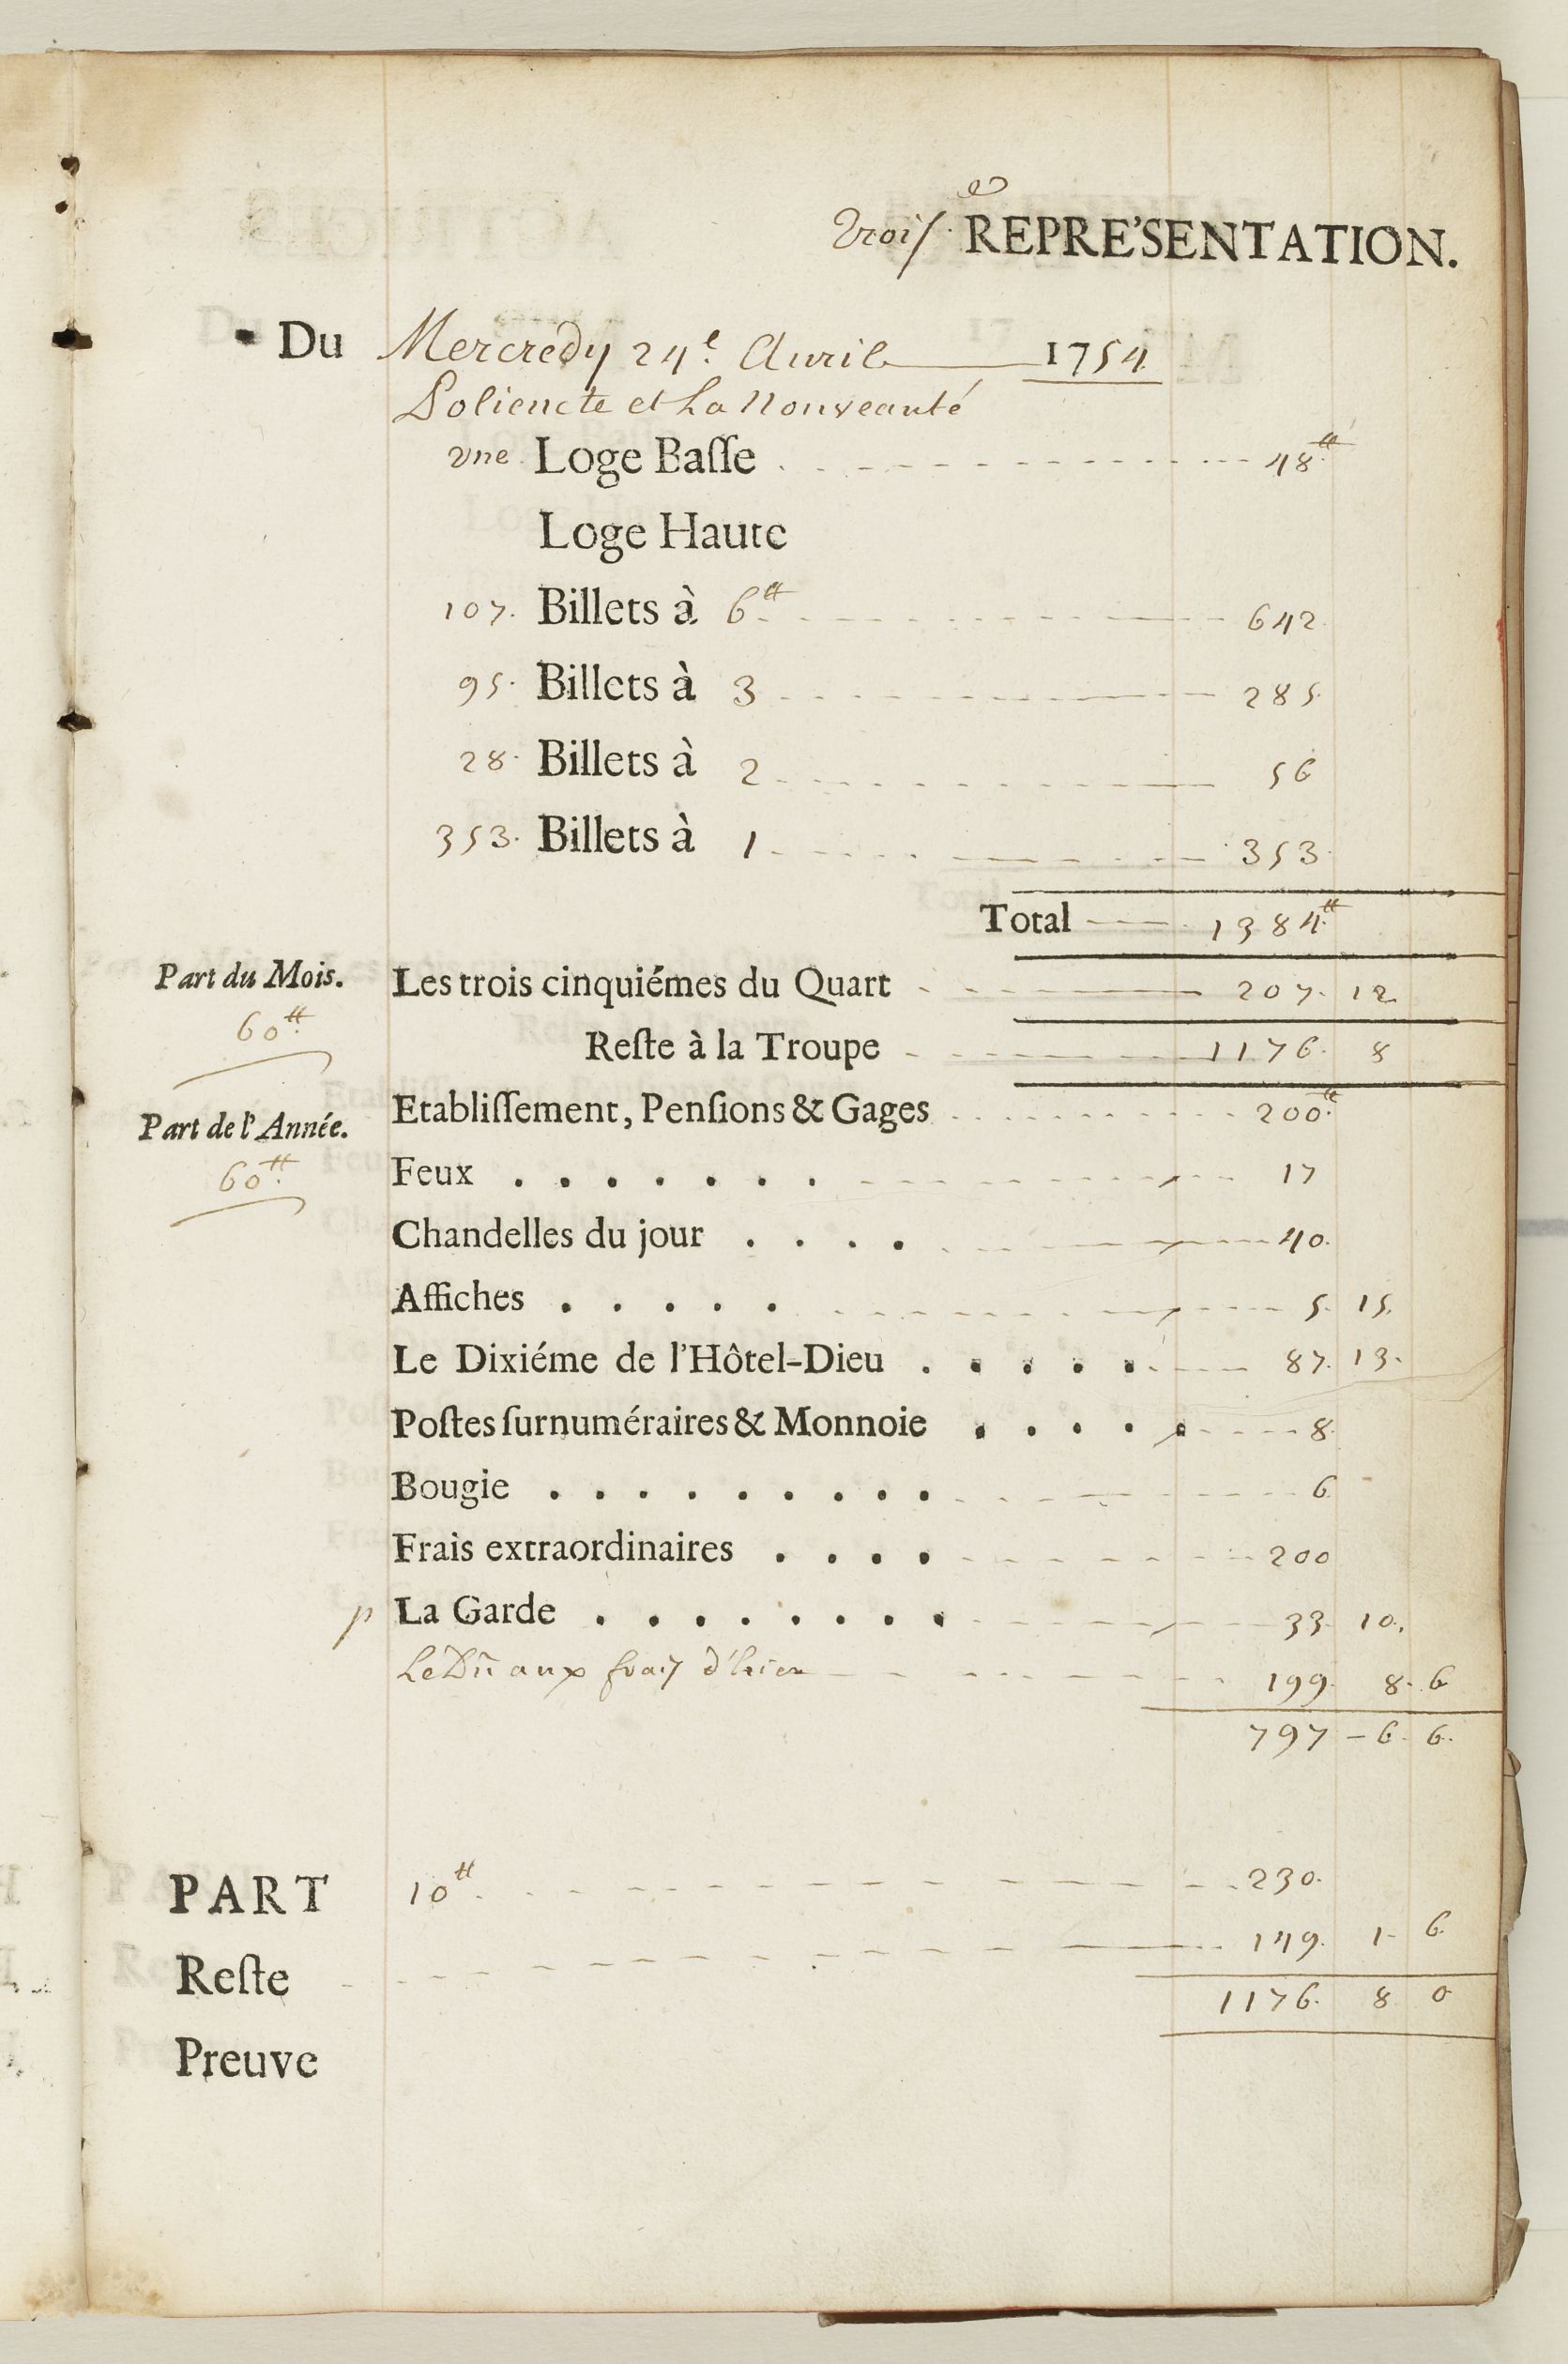 Trois.e REPRE'SENTATION.
Du Mercredy 24e. Auril 1754.
Polieucte et La Nouveauté
vne Loge Baſſe 48tt.
Loge Haute
107. Billets à 6tt. 642.
95. Billets à 3 285.
28. Billets à 2 56
353. Billets à 1 353.
Total 1384.tt
Part du Mois. Les trois cinquiémes du Quart 207. 12
60tt.
Reſte à la Troupe 1176. 8
Etabliſſement, Penſions & Gages 200.tt
Part de l'Année.
60tt.
Feux . . . . . . . 17
Chandelles du jour . . . . 40.
Affiches . . . . . 5. 15.
Le Dixiéme de l'Hôtel-Dieu . . . . . 87. 13.
Poſtes ſurnuméraires & Monnoie . . . . . 8.
Bougie . . . . . . . . . 6
Frais extraordinaires . . . . 200
p La Garde . . . . . . . . 33. 10.
Le Dû aux frais d'hier 199. 8. 6
797 - 6. 6.
PART 10tt. 230.
Reſte 149. 1. 6.
1176. 8 0
Preuve